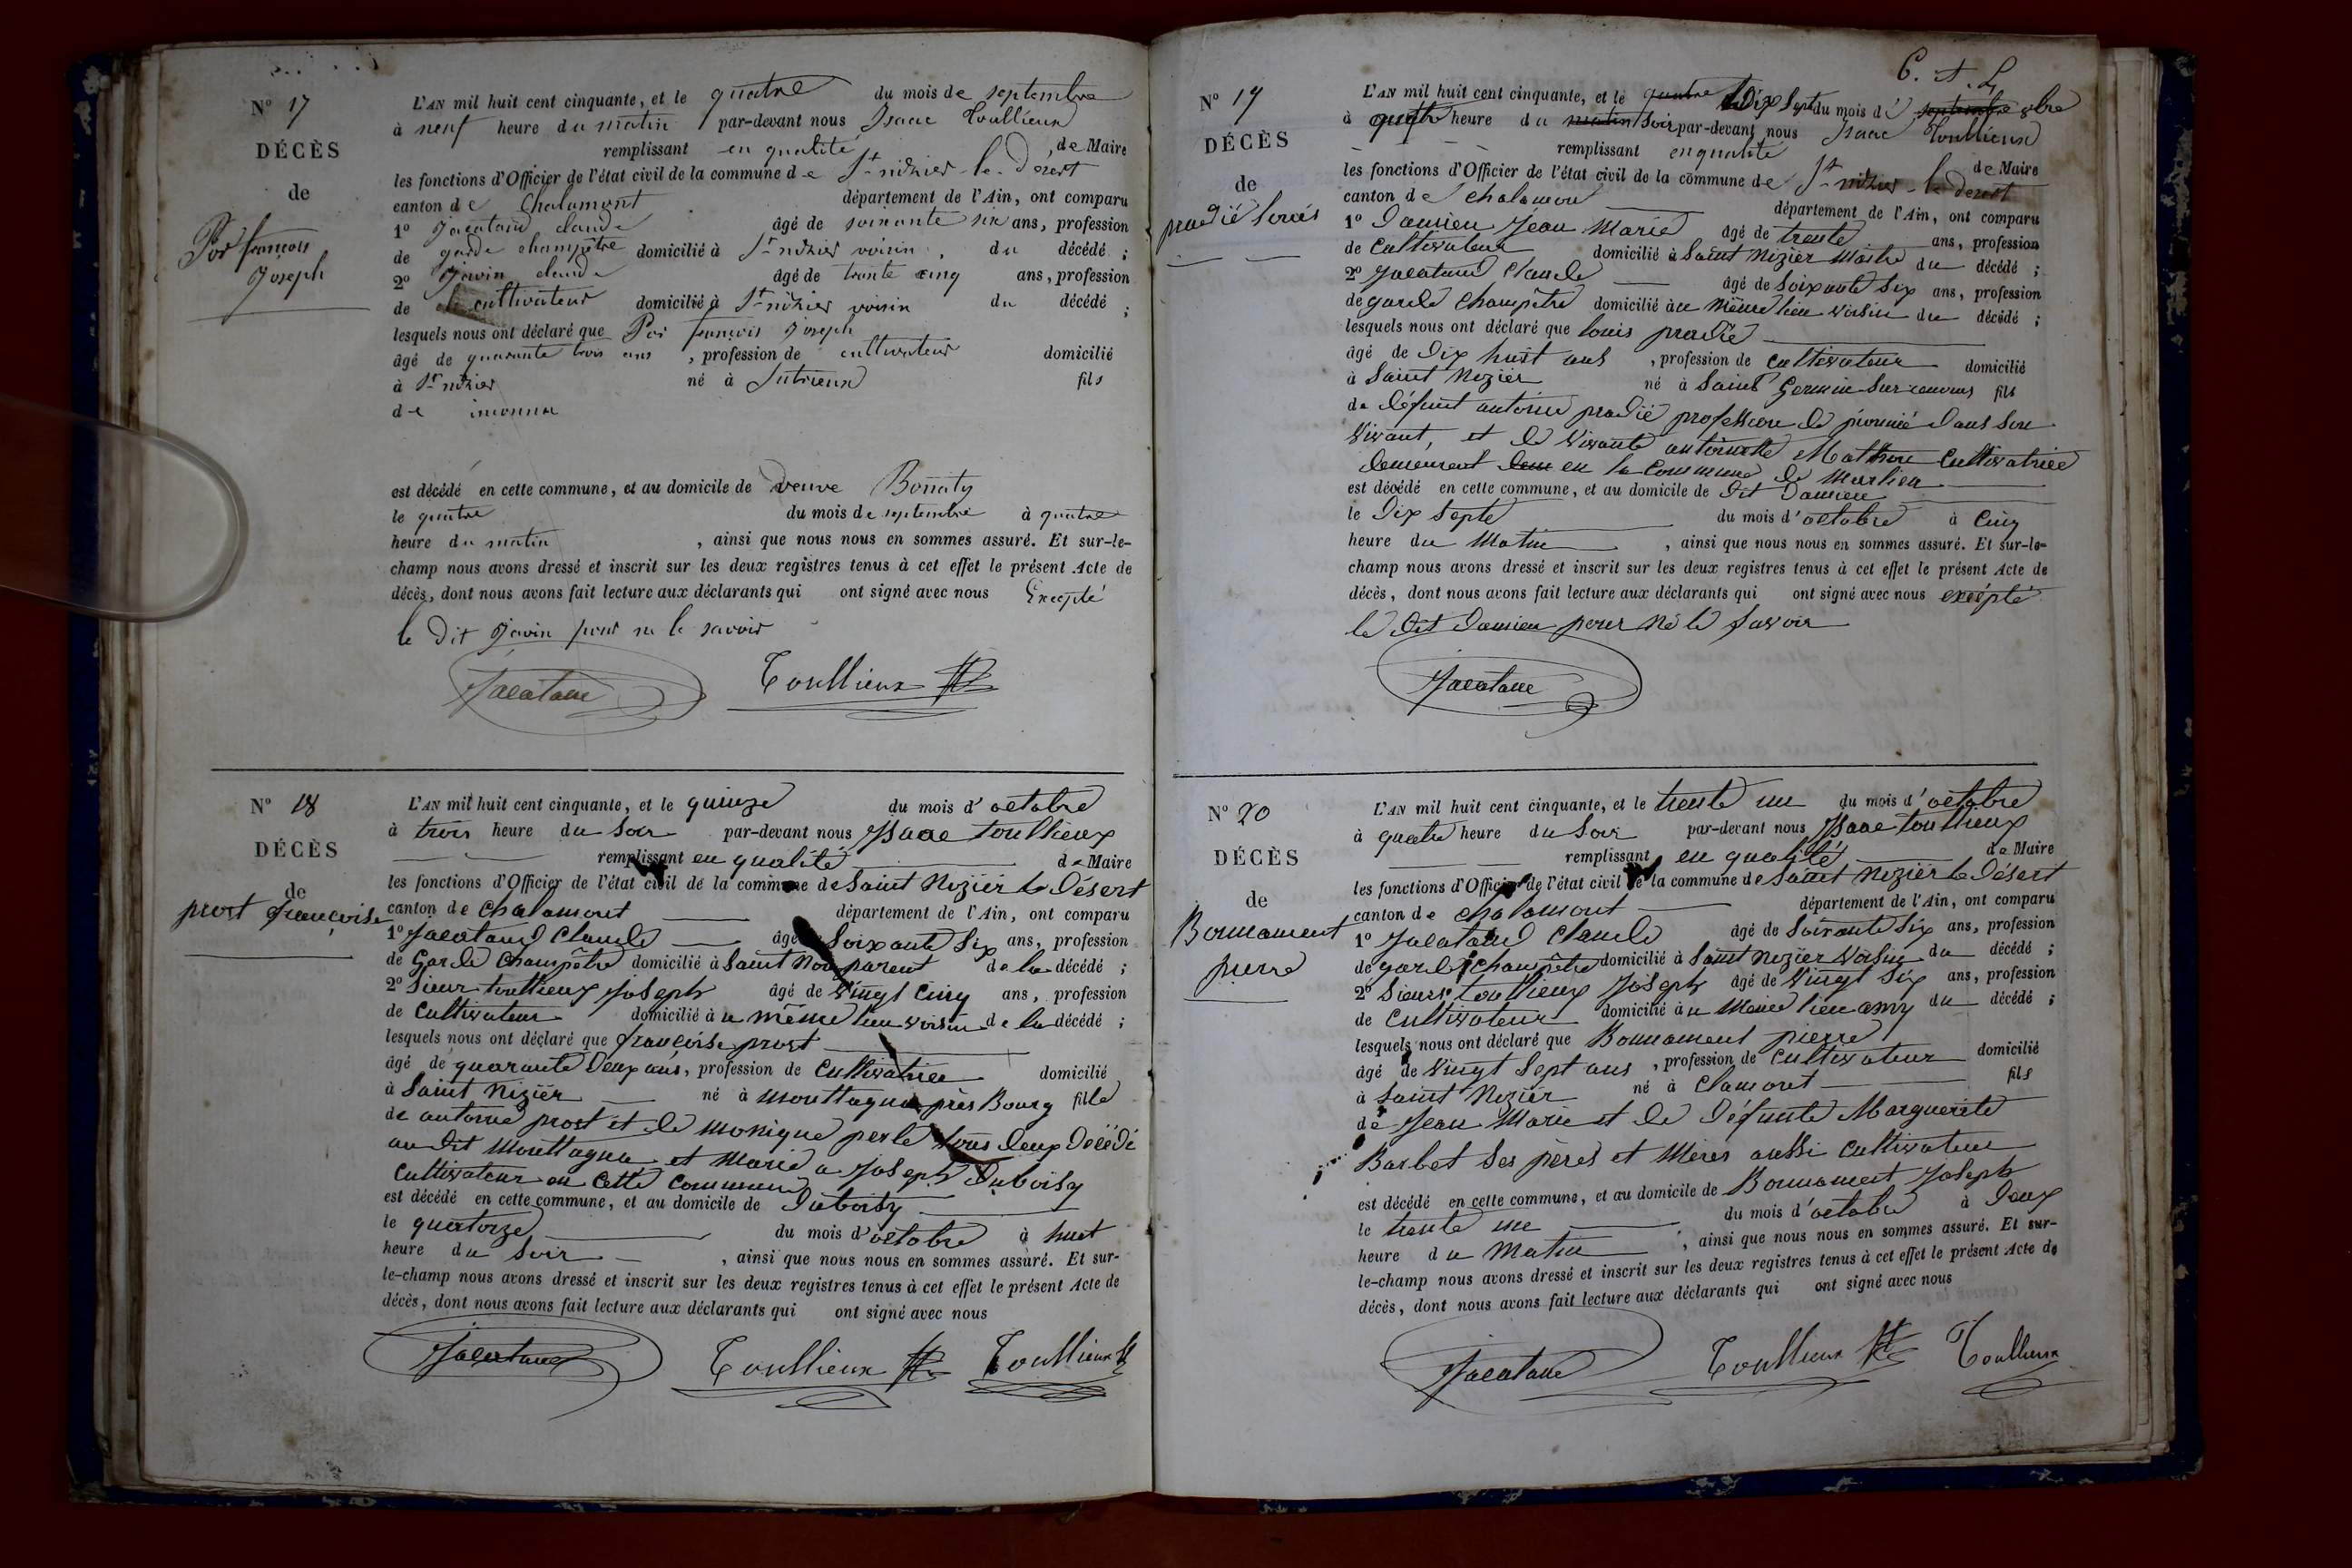 N° 17
DÉCÈS
de
Por françois
Joseph
L'AN mil huit cent cinquante, et le quatre du mois de septembre
à neuf heure du matin par-devant nous Isaac Toullieux
remplissant en qualité de Maire
les fonctions d'Officier de l'état civil de la commune de St nizier le Desert
canton de Chalamont département de l'Ain, ont comparu
1° Jacataud claude âgé de soixante six ans, profession
de garde champêtre domicilié à St nizier voisin, du décédé ;
2° Javin claude âgé de trente cinq ans, profession
de cultivateur domicilié à St nizier voisin du décédé ;
lesquels nous ont déclaré que Por françois Joseph
âgé de quarante trois ans, profession de cultivateur domicilié
à St nizier né à Jutrieux fils
de inconnu
est décédé en cette commune, et au domicile de veuve Bonnaty
le quatre du mois de septembre à quatre
heure du matin, ainsi que nous nous en sommes assuré. Et sur-le-
champ nous avons dressé et inscrit sur les deux registres tenus à cet effet le présent Acte de
décès, dont nous avons fait lecture aux déclarants qui ont signé avec nous Excepté
le dit Javin pour ne le savoir
Jacataud Toullieux
N° 18
DÉCÈS
de
prost françoise
L'AN mil huit cent cinquante, et le quinze du mois d'octobre
à trois heure du soir par-devant nous Isaac toullieux
remplissant en qualité de Maire
les fonctions d'Officier de l'état civil de la commune de Saint Nizier le Désert
canton de chalamont département de l'Ain, ont comparu
1° Jacataud Claude âgé Soixante Six ans, profession
de Garde Champêtre domicilié à Saint Non parent de la décédé ;
2° Sieur toullieux Joseph âgé de Vingt Cinq ans, profession
de Cultivateur domicilié à u même lieu voisin de la décédé ;
lesquels nous ont déclaré que françoise prost
âgé de quarante Deux ans, profession de Cultivatrice domicilié
à Saint Nizier né à Montagna près Bourg fille
de antoine prost et de monique perle tous deux Décédé
au dit Montagna et Marié a Joseph Duboisy
Cultivateur en Cette Commune
est décédé en cette commune, et au domicile de Duboisy
le quatorze du mois d'octobre à huit
heure du Soir, ainsi que nous nous en sommes assuré. Et sur-
le-champ nous avons dressé et inscrit sur les deux registres tenus à cet effet le présent Acte de
décès, dont nous avons fait lecture aux déclarants qui ont signé avec nous
Jacataud Toullieux Toullieux
N° 19
DÉCÈS
de
pradié louis
L'AN mil huit cent cinquante, et le quatre Dix Sept du mois de septembre 8bre
à quatre heure du matin Soir par-devant nous Isaac Toullieux
remplissant en qualité de Maire
les fonctions d'Officier de l'état civil de la commune de St nizier le desert
canton de Chalamon département de l'Ain, ont comparu
1° Damien Jean Marie âgé de trente ans, profession
de Cultivateur domicilié à Saint Nizier Maitre du décédé ;
2° Jacataud Claude âgé de Soixante Six ans, profession
de garde Champêtre domicilié à u même lieu voisin du décédé ;
lesquels nous ont déclaré que louis pradié
âgé de Dix huit ans, profession de Cultivateur domicilié
à Saint Nizier né à Saint Germin Sur fils
de défunt antoine pradié profession de dans son
Vivant, et de Vivante antoinette Mathon Cultivatrice
demeurant en la Commune de Marlieu
est décédé en cette commune, et au domicile de Dit Damien
le Dix Septe du mois d'octobre à Cinq
heure du Matin, ainsi que nous nous en sommes assuré. Et sur-le-
champ nous avons dressé et inscrit sur les deux registres tenus à cet effet le présent Acte de
décès, dont nous avons fait lecture aux déclarants qui ont signé avec nous excépté
le Dit Damien pour Ne le Savoir
Jacataud
N° 20
DÉCÈS
de
Bonnament
pierre
L'AN mil huit cent cinquante, et le trente un du mois d'octobre
à quatre heure du Soir par-devant nous Isaac toullieux
remplissant en qualité de Maire
les fonctions d'Officier de l'état civil de la commune de Saint Nizier le Désert
canton de chalamont département de l'Ain, ont comparu
1° Jacataud Claude âgé de Soixante Six ans, profession
de garde champêtre domicilié à Saint Nizier Voisin du décédé ;
2° Sieur toullieux Joseph âgé de Vingt Six ans, profession
de Cultivateur domicilié à u Même lieu amy du décédé ;
lesquels nous ont déclaré que Bonnament pierre
âgé de Vingt Sept ans, profession de Cultivateur domicilié
à Saint Nizier né à Clamont fils
de Jean Marie et de Défunte Marguerite
Barbet Ses pères et Mères aussi Cultivateur
est décédé en cette commune, et au domicile de Bonnament Joseph
le trente un du mois d'octobre à Deux
heure du Matin, ainsi que nous nous en sommes assuré. Et sur-
le-champ nous avons dressé et inscrit sur les deux registres tenus à cet effet le présent Acte de
décès, dont nous avons fait lecture aux déclarants qui ont signé avec nous
Jacataud Toullieux Toullieux